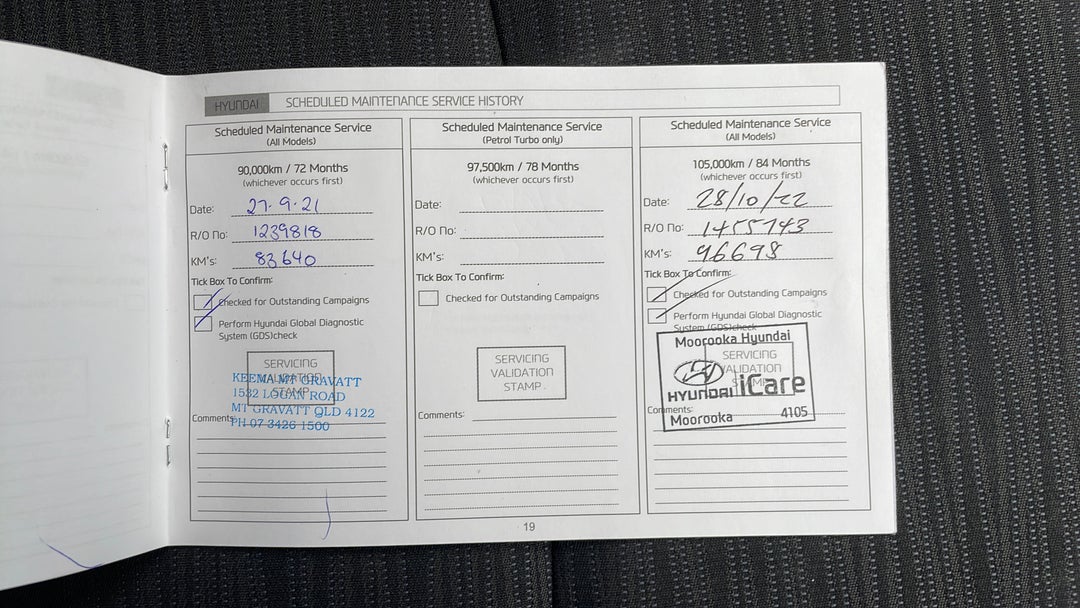 HYUNDAI SCHEDULED MAINTENANCE SERVICE HISTORY
Scheduled Maintenance Service
(All Models)
90,000km / 72 Months
(whichever occurs first)
Date: 27.9.21
R/O No: 1239818
KM's: 83640
Tick Box To Confirm:
Checked for Outstanding Campaigns
Perform Hyundai Global Diagnostic
System (GDS)check
SERVICING
VALIDATION
STAMP
KEEMA MT GRAVATT
1532 LOGAN ROAD
MT GRAVATT QLD 4122
PH 07 3426 1500
Comments:
Scheduled Maintenance Service
(Petrol Turbo only)
97,500km / 78 Months
(whichever occurs first)
Date:
R/O No:
KM's:
Tick Box To Confirm:
Checked for Outstanding Campaigns
SERVICING
VALIDATION
STAMP.
Comments:
Scheduled Maintenance Service
(All Models)
105,000km / 84 Months
(whichever occurs first)
Date: 28/10/22
R/O No: 1455743
KM's: 96698
Tick Box To Confirm:
Checked for Outstanding Campaigns
Perform Hyundai Global Diagnostic
System (GDS)check
SERVICING
VALIDATION
STAMP
Moorooka Hyundai
HYUNDAI iCare
Moorooka 4105
Comments:
19